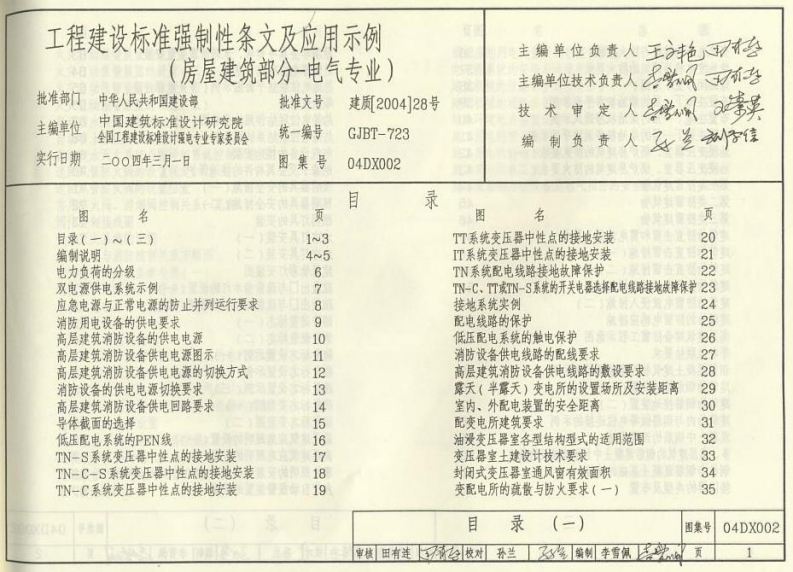 工程建设标准强制性条文及应用示例
(房屋建筑部分-电气专业)
批准部门 中华人民共和国建设部 批准文号 建质[2004]28号
主编单位 中国建筑标准设计研究院
全国工程建设标准设计强电专业专家委员会 统一编号 GJBT-723
实行日期 二〇〇四年三月一日 图集号 04DX002
主编单位负责人
主编单位技术负责人
技术审定人
编制负责人
目 录
图 名 页
目录(一)~(三) 1~3
编制说明 4~5
电力负荷的分级 6
双电源供电系统示例 7
应急电源与正常电源的防止并列运行要求 8
消防用电设备的供电要求 9
高层建筑消防设备的供电电源 10
高层建筑消防设备供电电源图示 11
高层建筑消防设备供电电源的切换方式 12
消防设备的供电电源切换要求 13
高层建筑消防设备供电回路要求 14
导体截面的选择 15
低压配电系统的PEN线 16
TN-S系统变压器中性点的接地安装 17
TN-C-S系统变压器中性点的接地安装 18
TN-C系统变压器中性点的接地安装 19
图 名 页
TT系统变压器中性点的接地安装 20
IT系统变压器中性点的接地安装 21
TN系统配电线路接地故障保护 22
TN-C、TT或TN-S系统的开关电器选择配电线路接地故障保护 23
接地系统实例 24
配电线路的保护 25
低压配电系统的触电保护 26
消防设备供电线路的配线要求 27
高层建筑消防设备供电线路的敷设要求 28
露天(半露天)变电所的设置场所及安装距离 29
室内、外配电装置的安全距离 30
配变电所建筑要求 31
油浸变压器室各型结构型式的适用范围 32
变压器室土建设计技术要求 33
封闭式变压器室通风窗有效面积 34
变配电所的疏散与防火要求(一) 35
目 录 (一) 图集号 04DX002
审核 田有连 校对 孙兰 编制 李雪佩 页 1